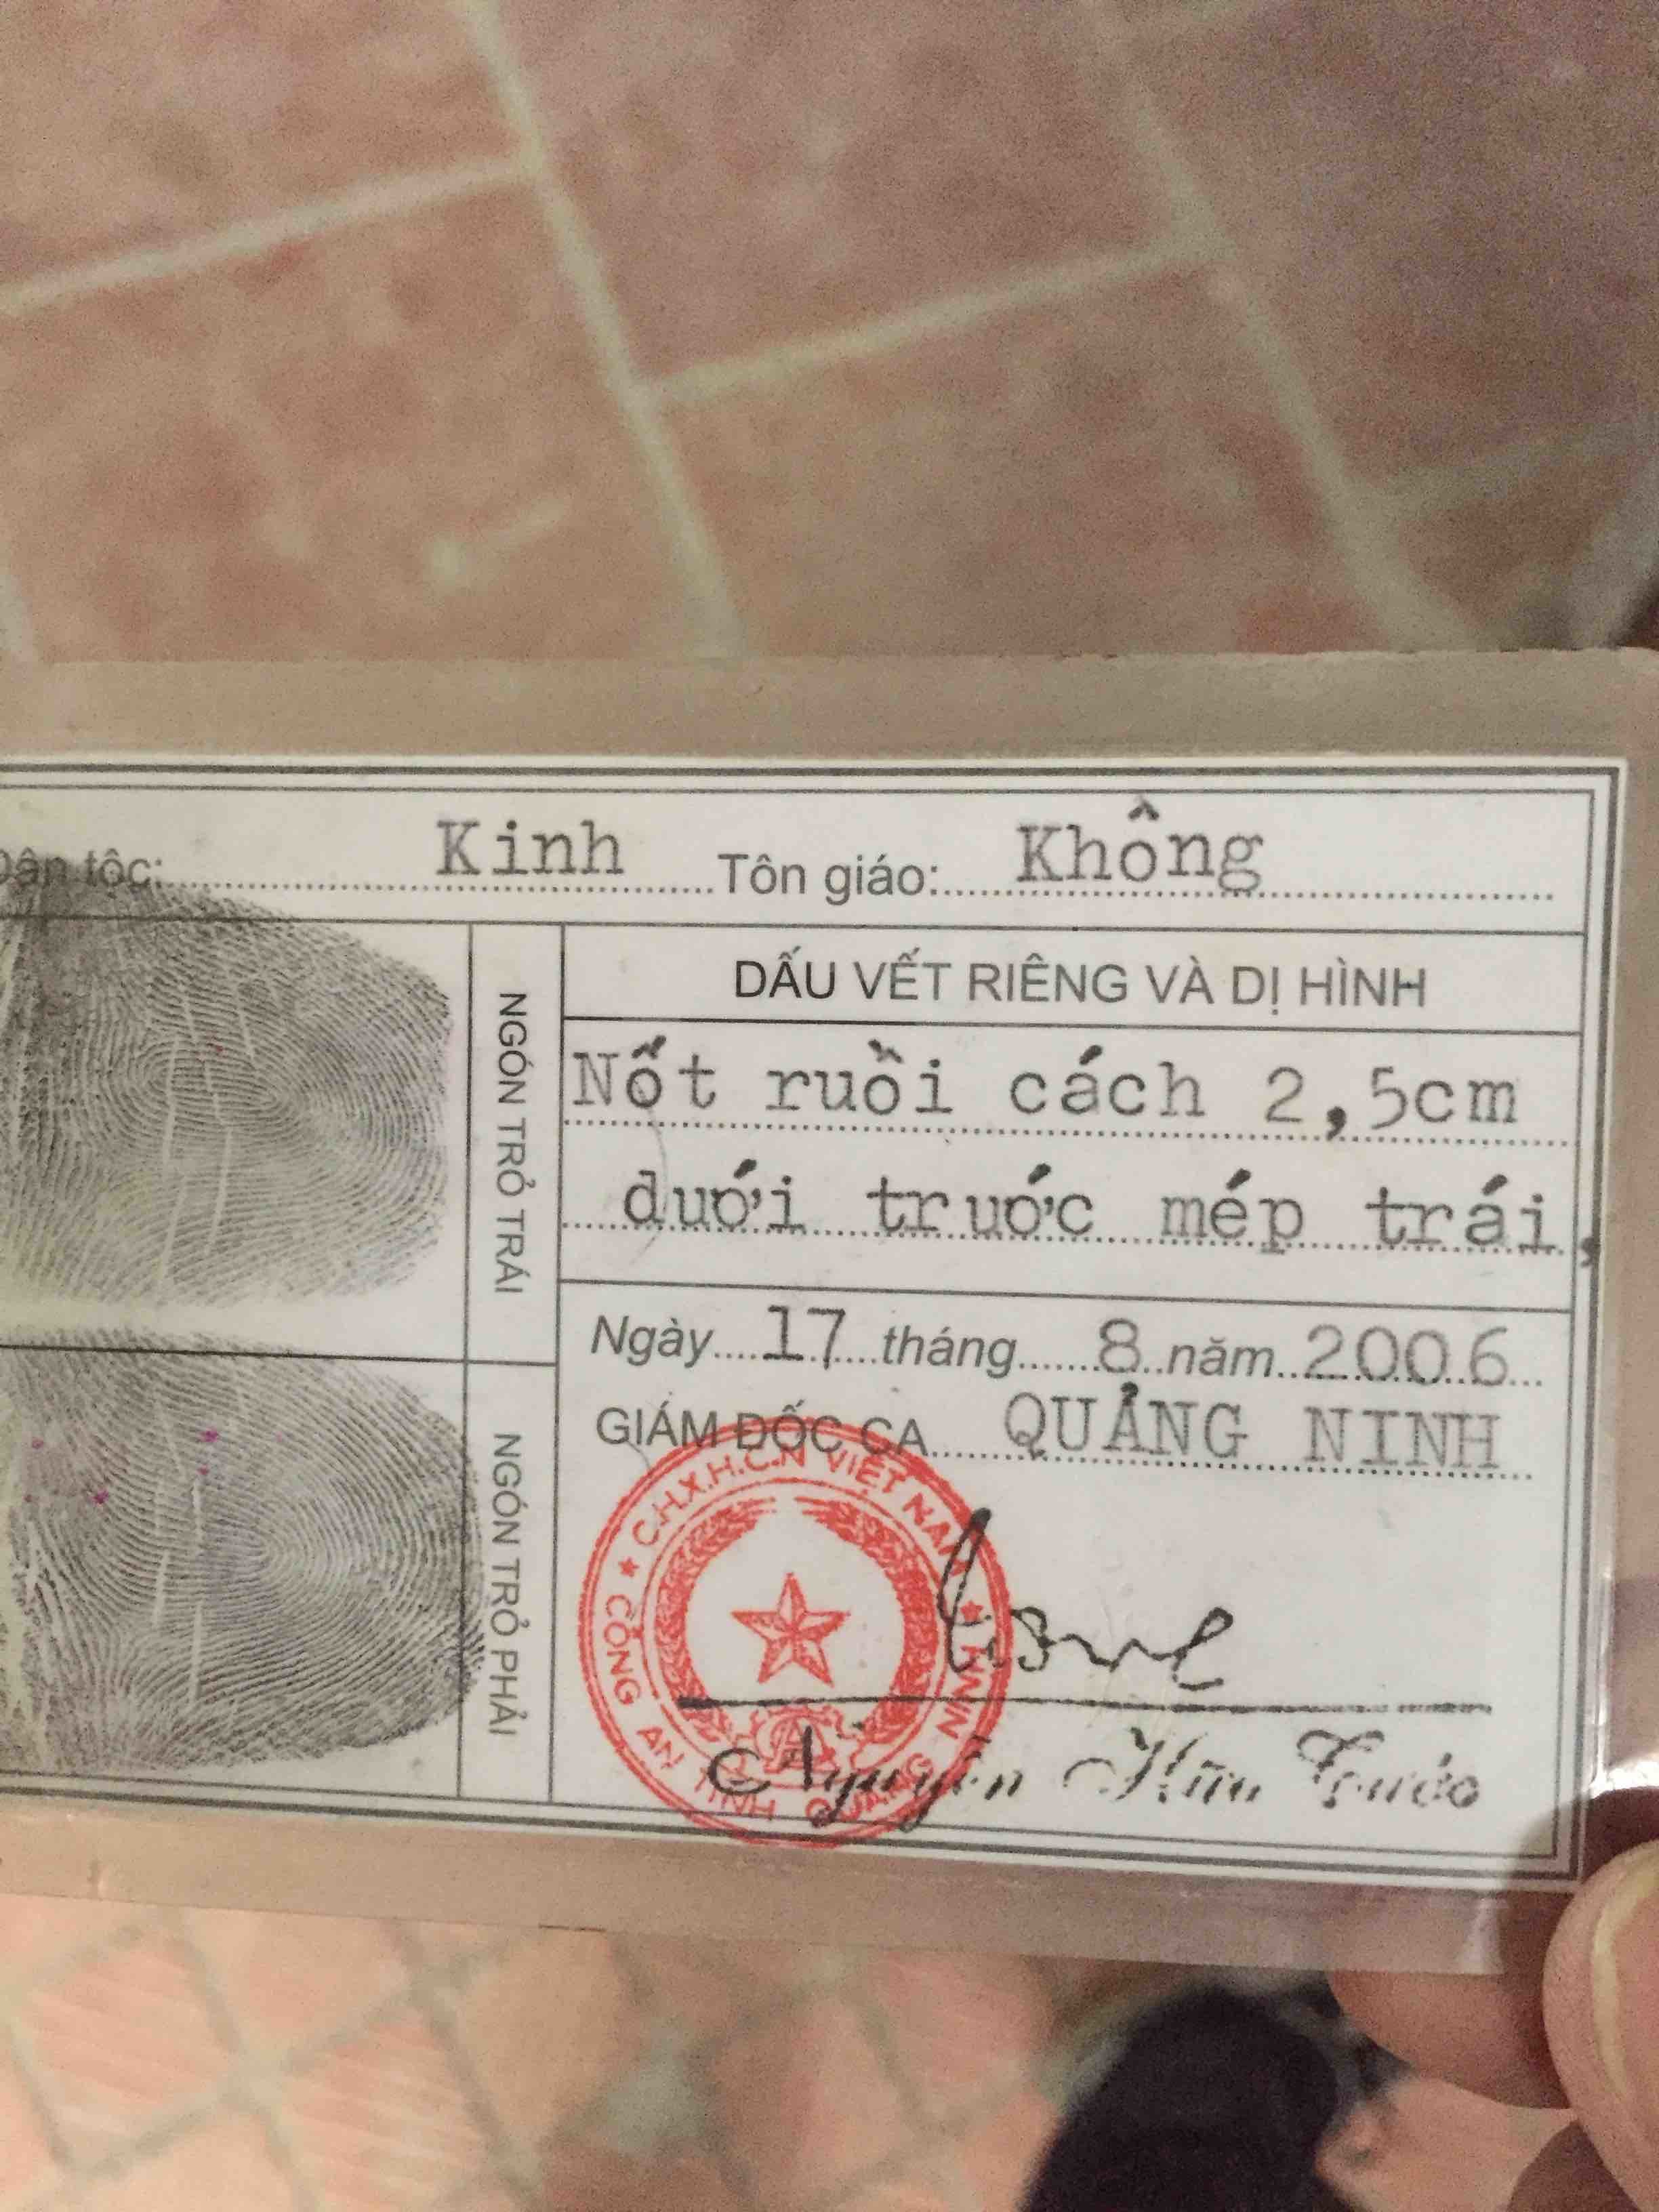 Dân tộc: Kinh Tôn giáo: Không
NGÓN TRỎ TRÁI
DẤU VẾT RIÊNG VÀ DỊ HÌNH
Nốt ruồi cách 2,5cm
dưới trước mép trái,
NGÓN TRỎ PHẢI
Ngày 17 tháng 8 năm 2006
GIÁM ĐỐC CA QUẢNG NINH
C.H.X.H.C.N VIỆT NAM
CÔNG AN TỈNH QUẢNG NINH
Nguyễn Hữu Tước